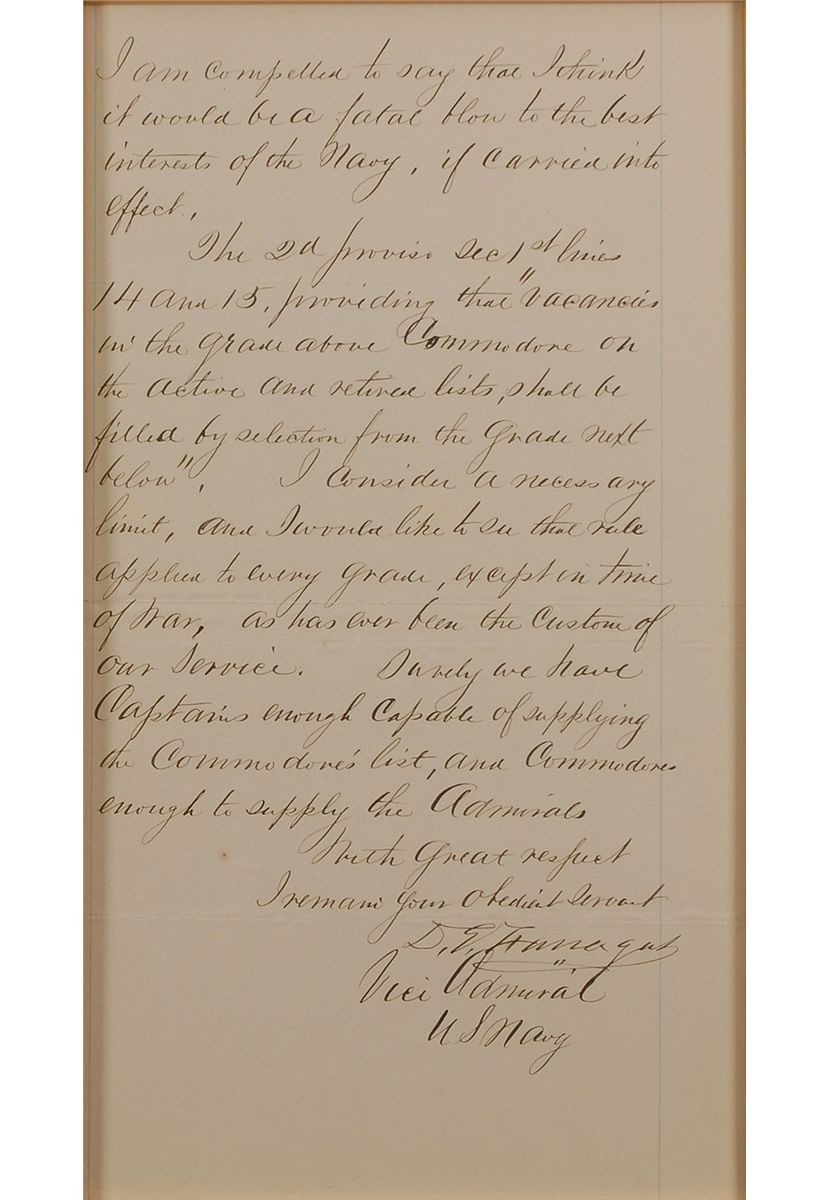 I am compelled to say that I think
it would be a fatal blow to the best
interests of the Navy, if carried into
effect.
The 2d proviso sec 1st lines
14 and 15, providing that "Vacancies
in the grade above Commodore on
the active and retired lists, shall be
filled by selection from the Grade next
below". I consider a necessary
limit, and I would like to see that rule
applied to every grade, except in time
of War, as has ever been the Custom of
our Service. Surely we have
Captains enough capable of supplying
the Commodore's list, and Commodores
enough to supply the Admirals
With Great respect
I remain your obedient Servant
D. G. Farragut
Vice Admiral
U S Navy